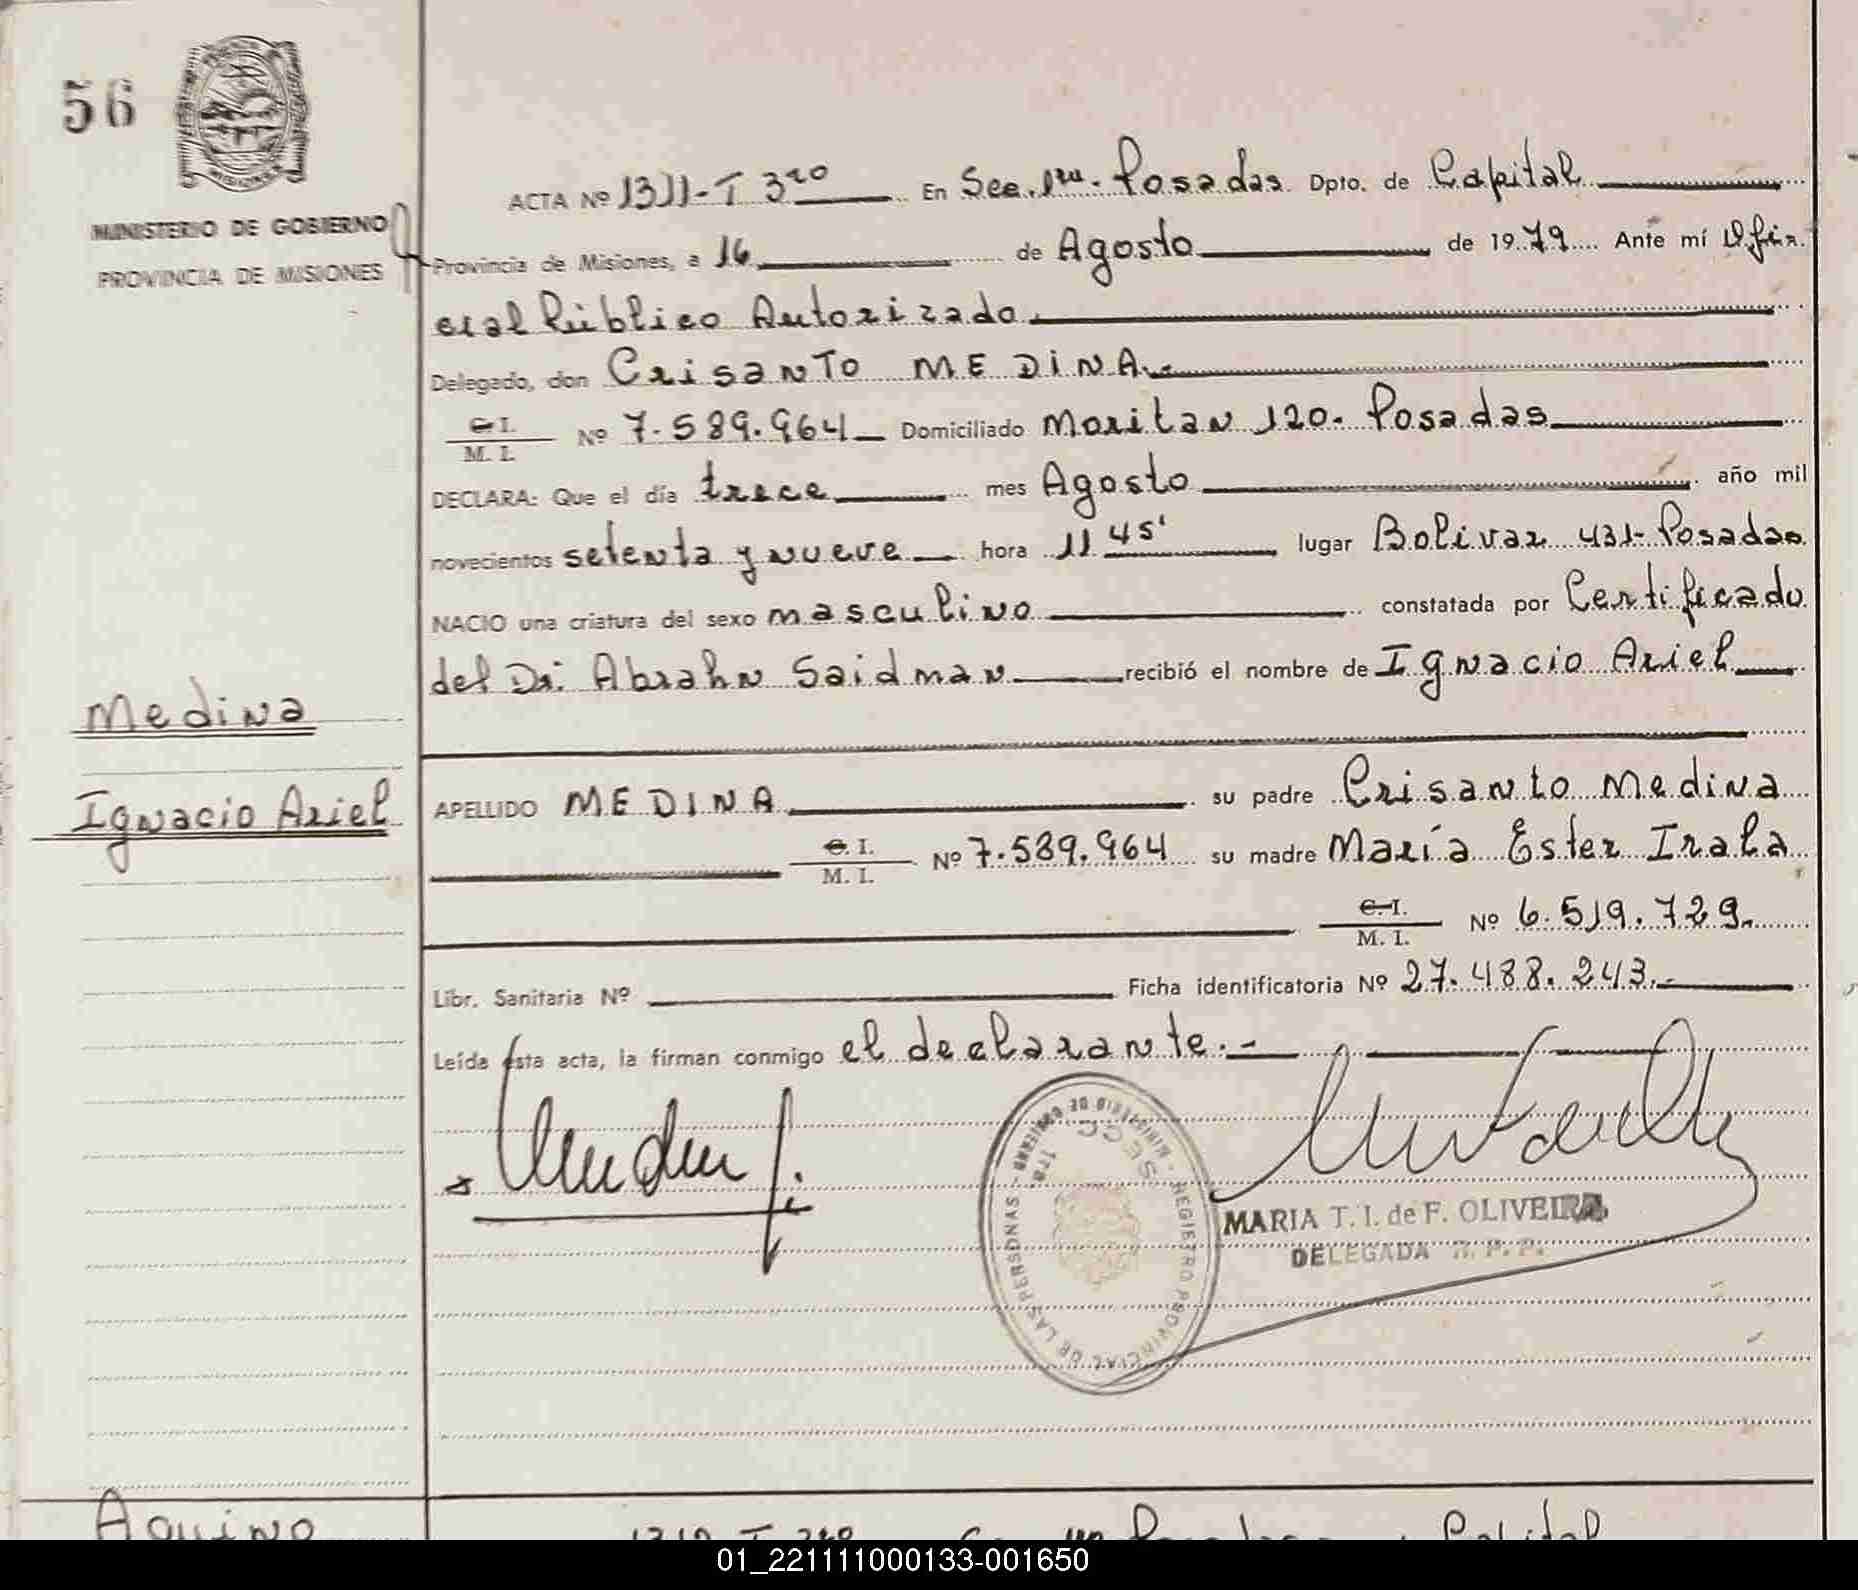 56
MISIONES
MINISTERIO DE GOBIERNO
PROVINCIA DE MISIONES
ACTA Nº 1311-T 3ro En Sec. 1ra. Posadas Dpto. de Capital
Provincia de Misiones, a 16 de Agosto de 1979 Ante mí Ofi
cial Público Autorizado
Delegado, don Crisanto MEDINA.-
C. I. / M. I. Nº 7.589.964 Domiciliado Moritan 120. Posadas
DECLARA: Que el día trece mes Agosto año mil
novecientos setenta y nueve hora 11 45' lugar Bolivar 431- Posadas
NACIO una criatura del sexo masculino constatada por Certificado
del Dr. Abrahn Saidman recibió el nombre de Ignacio Ariel
Medina
Ignacio Ariel
APELLIDO MEDINA su padre Crisanto Medina
C. I. / M. I. Nº 7.589.964 su madre María Ester Irala
C. I. / M. I. Nº 6.519.729.
Libr. Sanitaria Nº Ficha identificatoria Nº 27.488.243.-
Leída esta acta, la firman conmigo el declarante.-
MINISTERIO DE GOBIERNO - REGISTRO PROVINCIAL DE LAS PERSONAS -
SECC 1ra
MARIA T. I. de F. OLIVEIRA
DELEGADA R. P. P.
Aquino
1312 T 3ro Posadas Capital
01_221111000133-001650